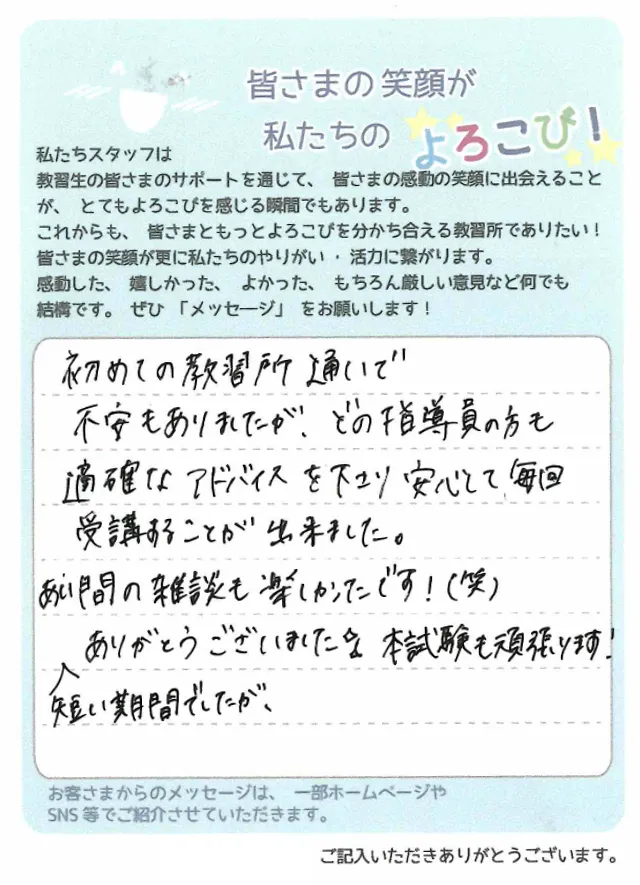 皆さまの笑顔が
私たちの よろこび!
私たちスタッフは
教習生の皆さまのサポートを通じて、皆さまの感動の笑顔に出会えること
が、とてもよろこびを感じる瞬間でもあります。
これからも、皆さまともっとよろこびを分かち合える教習所でありたい!
皆さまの笑顔が更に私たちのやりがい・活力に繋がります。
感動した、嬉しかった、よかった、もちろん厳しい意見など何でも
結構です。ぜひ「メッセージ」をお願いします!
初めての教習所通いで
不安もありましたが、どの指導員の方も
適確なアドバイスを下さり安心して毎回
受講することが出来ました。
あい間の雑談も楽しかったです!(笑)
ありがとうございました☆ 本試験も頑張ります!
短い期間でしたが、
お客さまからのメッセージは、一部ホームページや
SNS等でご紹介させていただきます。
ご記入いただきありがとうございます。